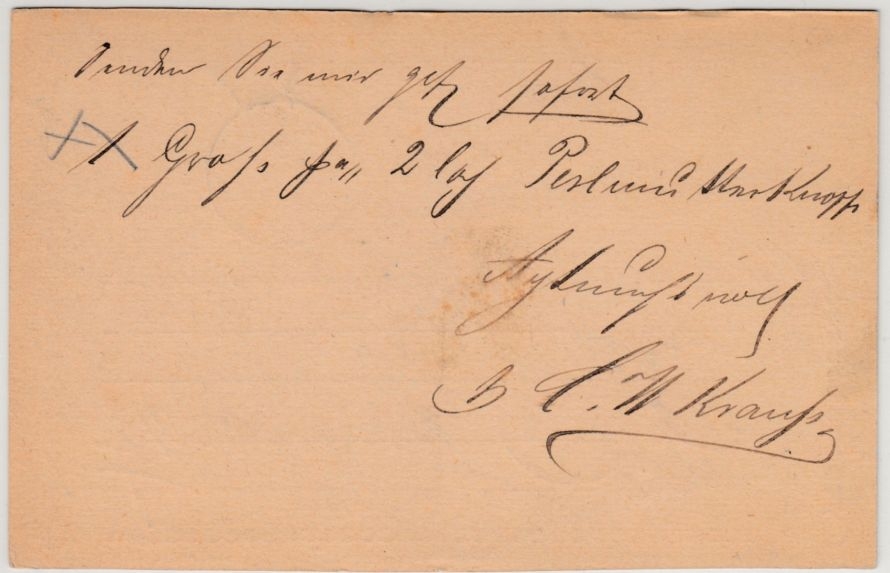 Senden Sie mir gefl sofort
1 Gross pa 2 loch Perlmutterknöpfe
Achtungsvoll
C. W Krauss